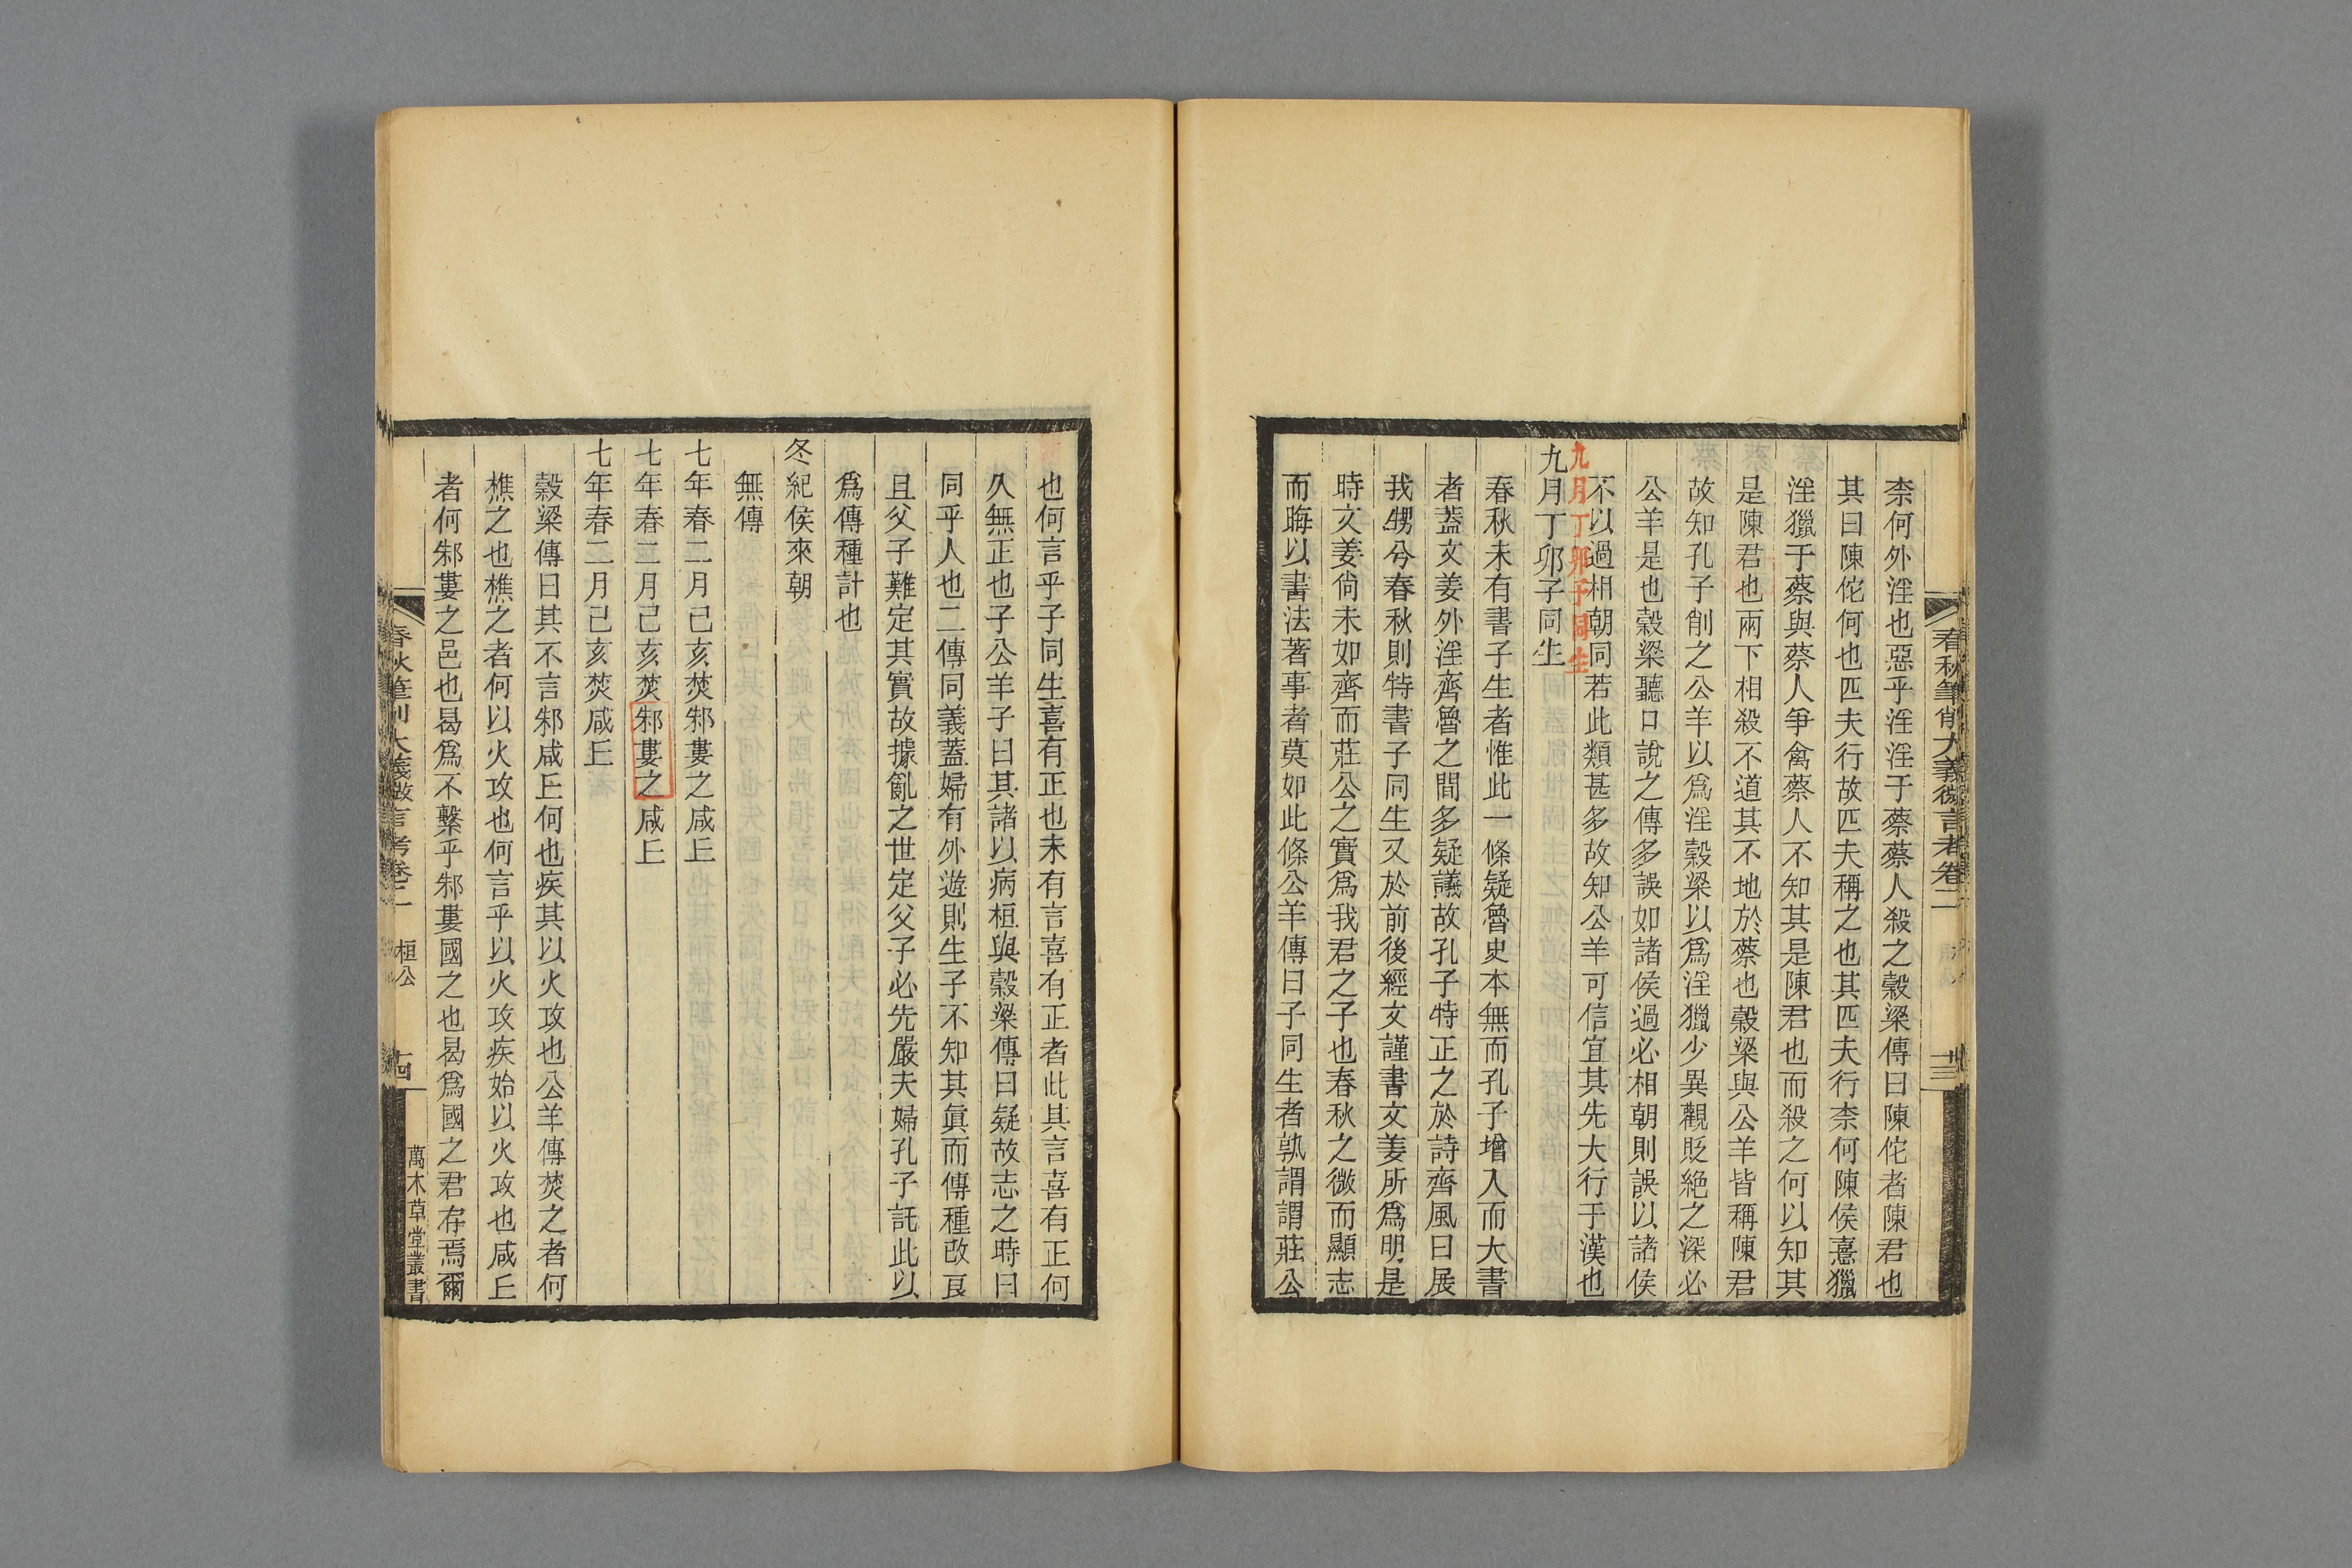 春秋筆削大義微言考卷二
十三
柰何外淫也惡乎淫淫于蔡蔡人殺之穀梁傳曰陳佗者陳君也
其曰陳佗何也匹夫行故匹夫稱之也其匹夫行柰何陳侯憙獵
淫獵于蔡與蔡人爭禽蔡人不知其是陳君也而殺之何以知其
是陳君也兩下相殺不道其不地於蔡也穀梁與公羊皆稱陳君
故知孔子削之公羊以爲淫穀梁以爲淫獵少異觀貶絶之深必
公羊是也穀梁聽口說之傳多誤如諸侯過必相朝則誤以諸侯
不以過相朝同若此類甚多故知公羊可信宜其先大行于漢也
九月丁卯子同生
九月丁卯子同生
春秋未有書子生者惟此一條疑魯史本無而孔子增入而大書
者蓋文姜外淫齊魯之間多疑議故孔子特正之於詩齊風曰展
我甥兮春秋則特書子同生又於前後經文謹書文姜所爲明是
時文姜尙未如齊而莊公之實爲我君之子也春秋之微而顯志
而晦以書法著事者莫如此條公羊傳曰子同生者孰謂謂莊公
也何言乎子同生喜有正也未有言喜有正者此其言喜有正何
久無正也子公羊子曰其諸以病桓與穀梁傳曰疑故志之時曰
同乎人也二傳同義蓋婦有外遊則生子不知其眞而傳種改良
且父子難定其實故據亂之世定父子必先嚴夫婦孔子託此以
爲傳種計也
冬紀侯來朝
無傳
七年春二月己亥焚邾婁之咸丘
七年春二月己亥焚邾婁之咸丘
七年春二月己亥焚咸丘
穀梁傳曰其不言邾咸丘何也疾其以火攻也公羊傳焚之者何
樵之也樵之者何以火攻也何言乎以火攻疾始以火攻也咸丘
者何邾婁之邑也曷爲不繫乎邾婁國之也曷爲國之君存焉爾
春秋筆削大義微言考卷二
桓公
十四
萬木草堂叢書